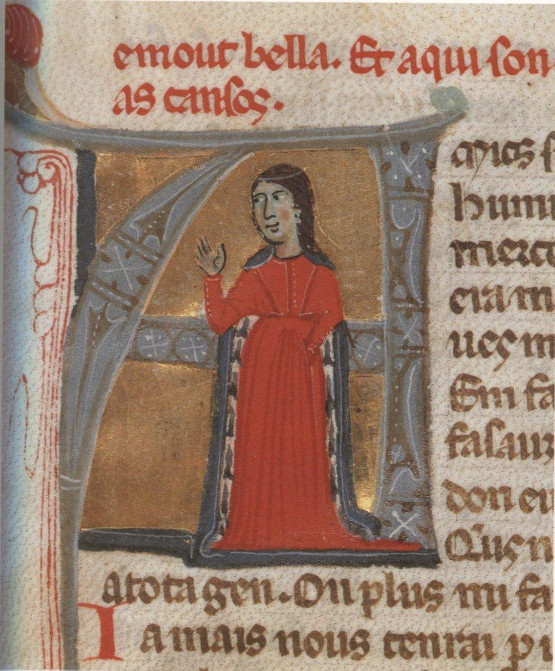 emout bella. Et aqui son
as cansos.
Amics s
humi
merce
era m
ues m
Em fa
fasauz
don ei
Atota gen. On plus mi fa
Ia mais nous tenrai pi